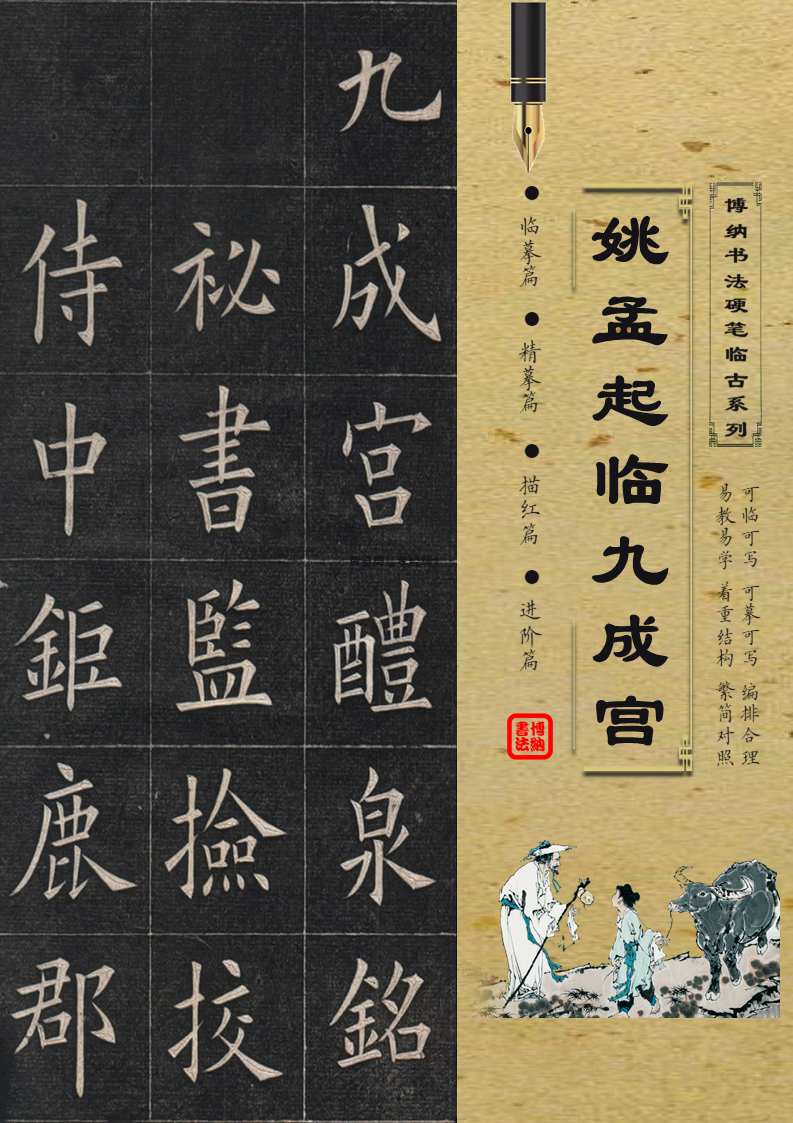 九成宫醴泉銘
祕書監撿挍
侍中鉅鹿郡
博纳书法硬笔临古系列
可临可写 可摹可写 编排合理
易教易学 着重结构 繁简对照
姚孟起临九成宫
临摹篇
精摹篇
描红篇
进阶篇
博纳
書法